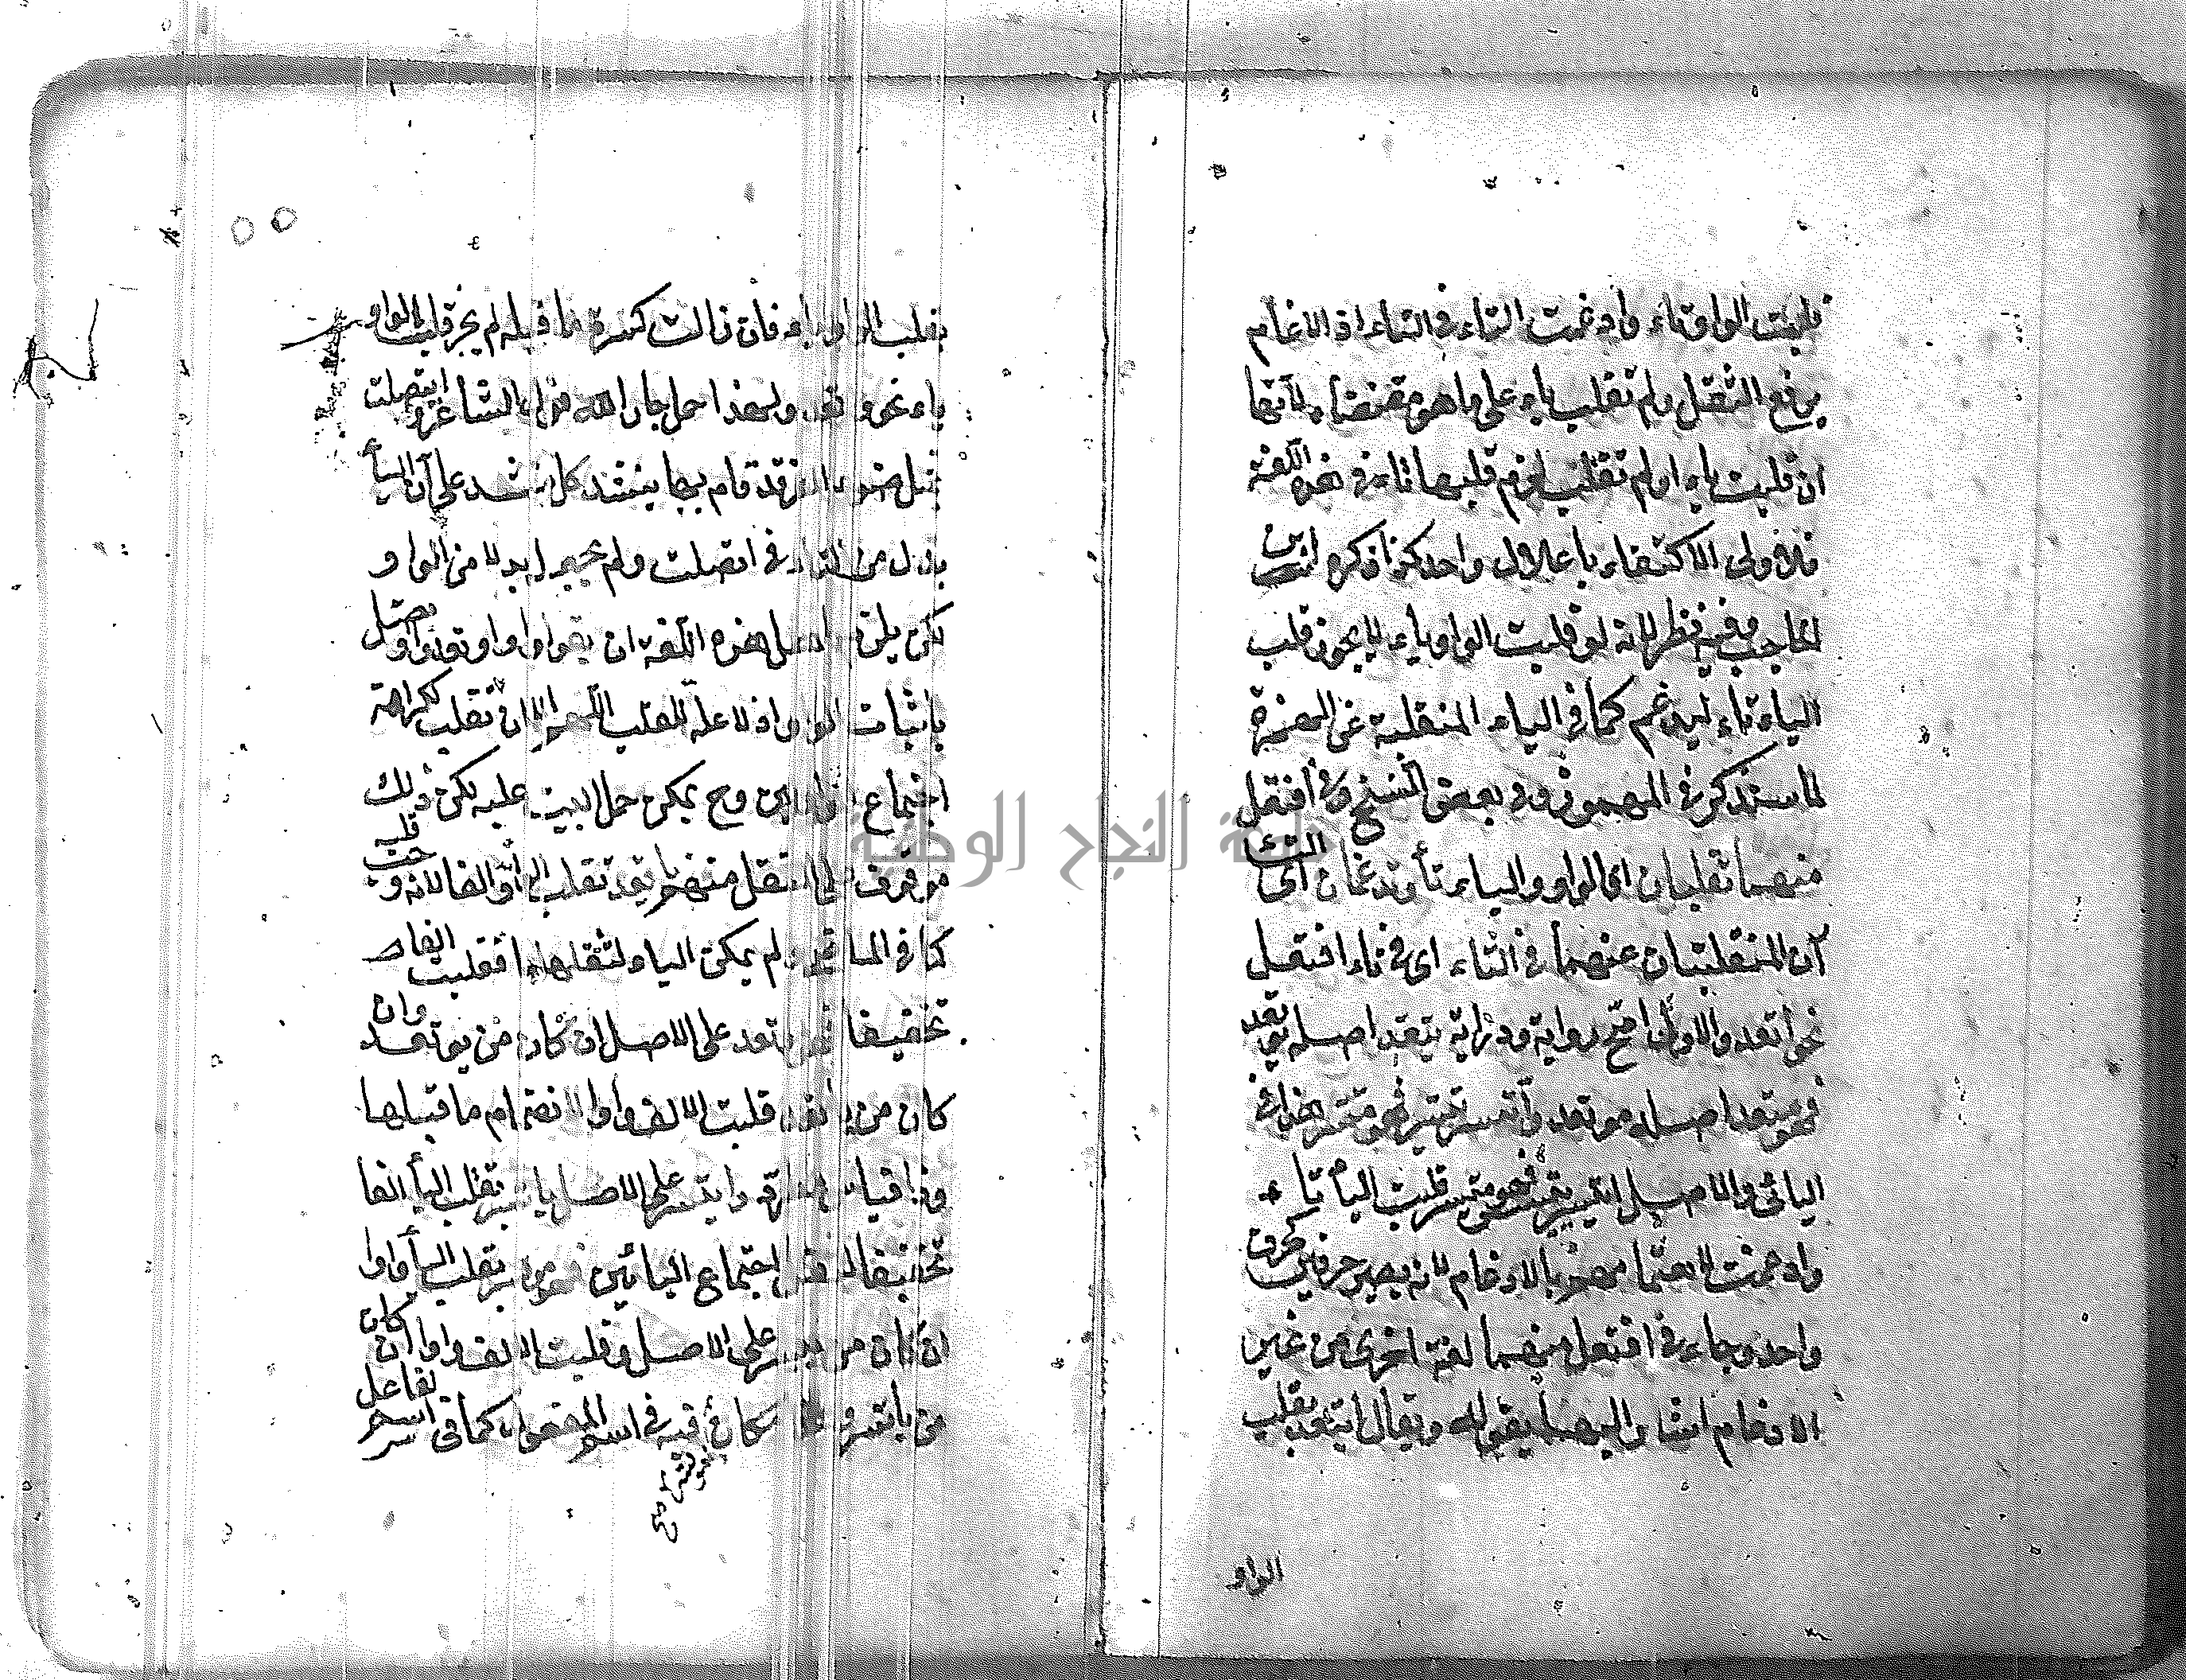 قلبت الواو تاء وادغمت التاء في التاء اذ الادغام
يرفع الثقل ولم تقلب ياء على ما هو مقتضاه لانها
ان قلبت ياء او لم تقلب لزم قلبها تاء في هذه اللغة
فالاولى الاكتفاء باعلال واحد كذا ذكره ابن
الحاجب وفيه نظر لانه لو قلبت الواو ياء لا يجوز قلب
الياء تاء ليدغم كما في الياء المنقلبة عن الهمزة
لما سنذكر في المهموز وفي بعض النسخ وفي افتعل
منهما تقلبان اي الواو والياء تاء وتدغمان اي التاء
آن المنقلبتان عنهما في التاء اي في تاء افتعل
نحو اتعد والاول اصح رواية ودراية يتعد اصله يوتعد
فهو متعد اصله موتعد واتسر يتسر فهو متسر هذا في
اليائي والاصل ايتسر ييتسر فهو ميتسر قلبت الياء تاء
وادغمت لاهتمامهم بالادغام لانه يصير حرفين كحرف
واحد وجاء في افتعل منهما لغة اخرى من غير
الادغام اشار اليها بقوله ويقال ايتعد بقلب
الواو
بقلب الواو ياء فان زالت كسرة ما قبله لم يجز قلب الواو
ياء نحو وتعد ولهذا حمل جار الله قول الشاعر وايتصلت
بمثل ضوء الفرقد قام بها ينشد كل منشد على ان الياء
بدل من التاء في اتصلت ولم يجعل بدلا من الواو
لكن يلزم اهل هذه اللغة ان يقولوا اوتعد واوتصل
باثبات الواو اذ لا علة للقلب اللهم الا ان تقلب كراهة
اجتماع الواوين وح يمكن حمل البيت عليه لكن ذلك
موقوف على النقل منهم ياتعد تقلب الواو الفا لانه وجب قلبه
كما في الماضي ولم يمكن الياء لثقلها فقلبت الفا
تخفيفا فهو موتعد على الاصل ان كان من يوتعد وان
كان من ياتعد قلبت الالف واوا لانضمام ما قبلها
وهذا قياس مطرد وايتسر على الاصل ياتسر بقلب الياء الفا
تخفيفا لثقل اجتماع اليائين فهو موتسر بقلب الياء واوا
ان كان من ييتسر على الاصل وقلبت الالف واوا ان كان
من ياتسر وهذا مكان في اسم المفعول كما في اسم الفاعل